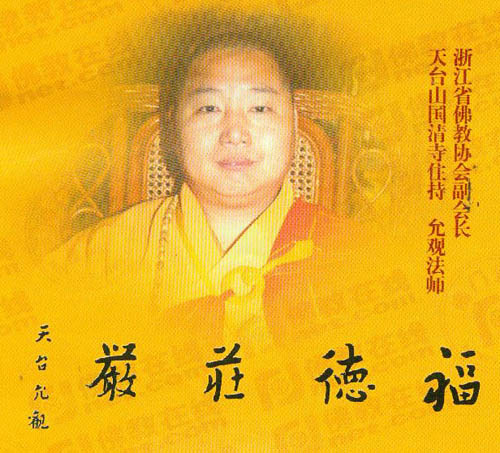 浙江省佛教协会副会长
天台山国清寺住持 允观法师
福德莊嚴
天台允觀
佛教在线